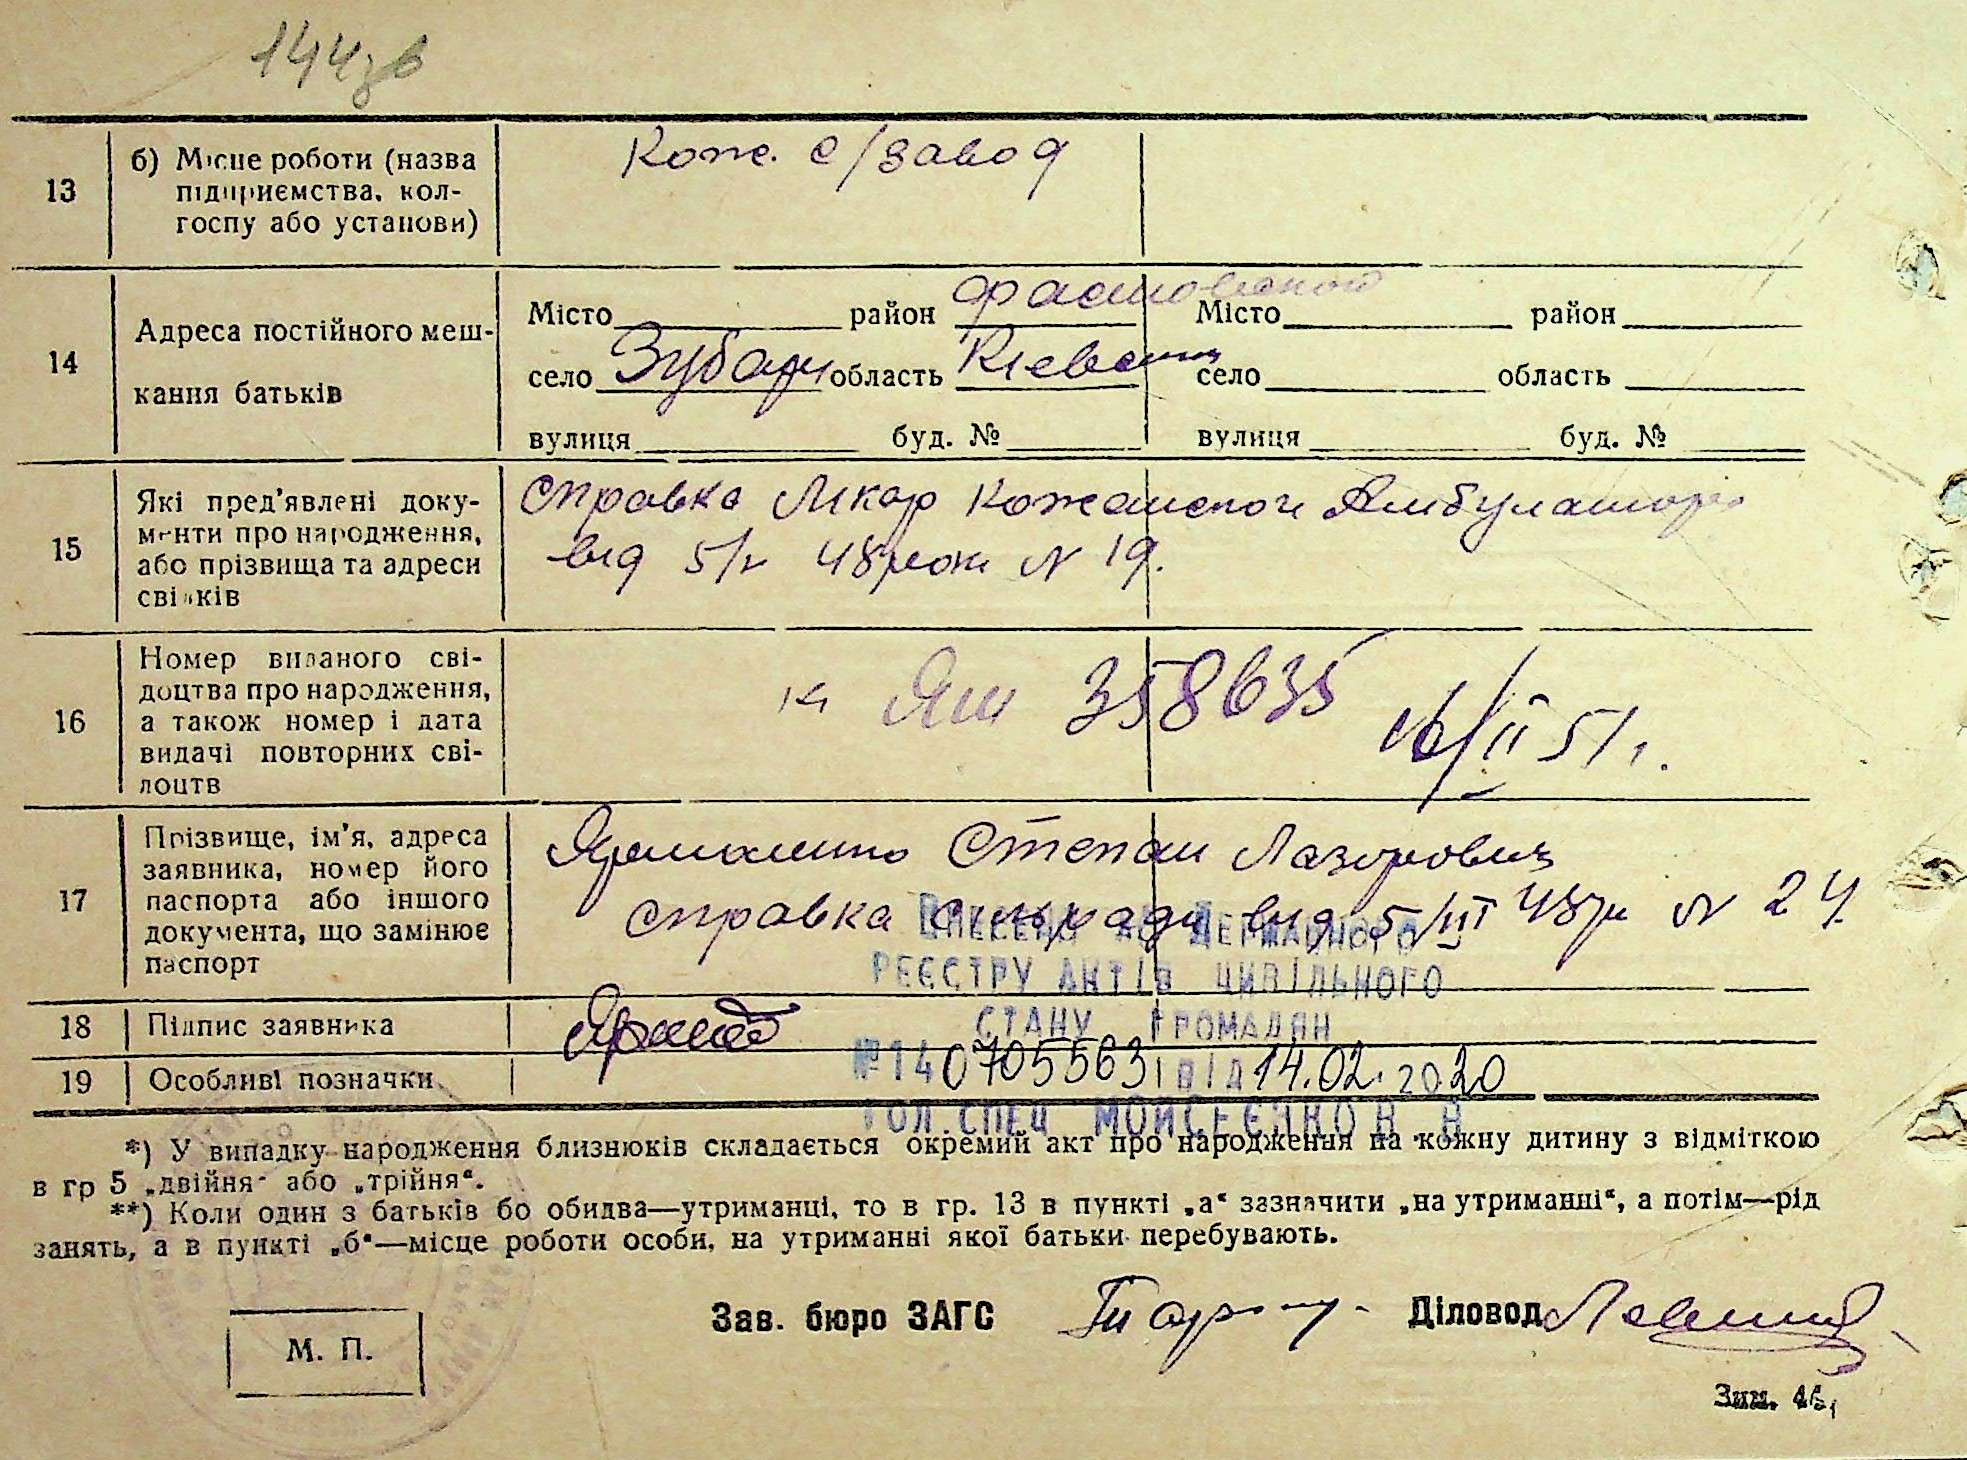 144зв
13 б) Місце роботи (назва підприємства, колгоспу або установи) Кож. с/завод
14 Адреса постійного мешкання батьків
Місто район Фастовской Місто район
село Зубари область Київськ село область
вулиця буд. № вулиця буд. №
15 Які пред'явлені документи про народження, або прізвища та адреси свідків
справка Лікар Кожанской Амбулаторіі
від 5/ 48 рок N 19.
16 Номер виданого свідоцтва про народження, а також номер і дата видачі повторних свідоцтв
Яш 358635 16/II 51 г.
17 Прізвище, ім'я, адреса заявника, номер його паспорта або іншого документа, що замінює паспорт
Степан Лазорович
справка сільради від 5/III 48 р N 24.
Внесено до Державного
реєстру актів цивільного
стану громадян
18 Підпис заявника
№ 140705563 від 14.02.2020
19 Особливі позначки
Гол.спец Мойсеєнко Н В
*) У випадку народження близнюків складається окремий акт про народження на кожну дитину з відміткою
в гр 5 „двійня“ або „трійня“.
**) Коли один з батьків бо обидва—утриманці, то в гр. 13 в пункті „а“ зазначити „на утриманні“, а потім—рід
занять, а в пункті „б“—місце роботи особи, на утриманні якої батьки перебувають.
Зав. бюро ЗАГС Діловод
М. П.